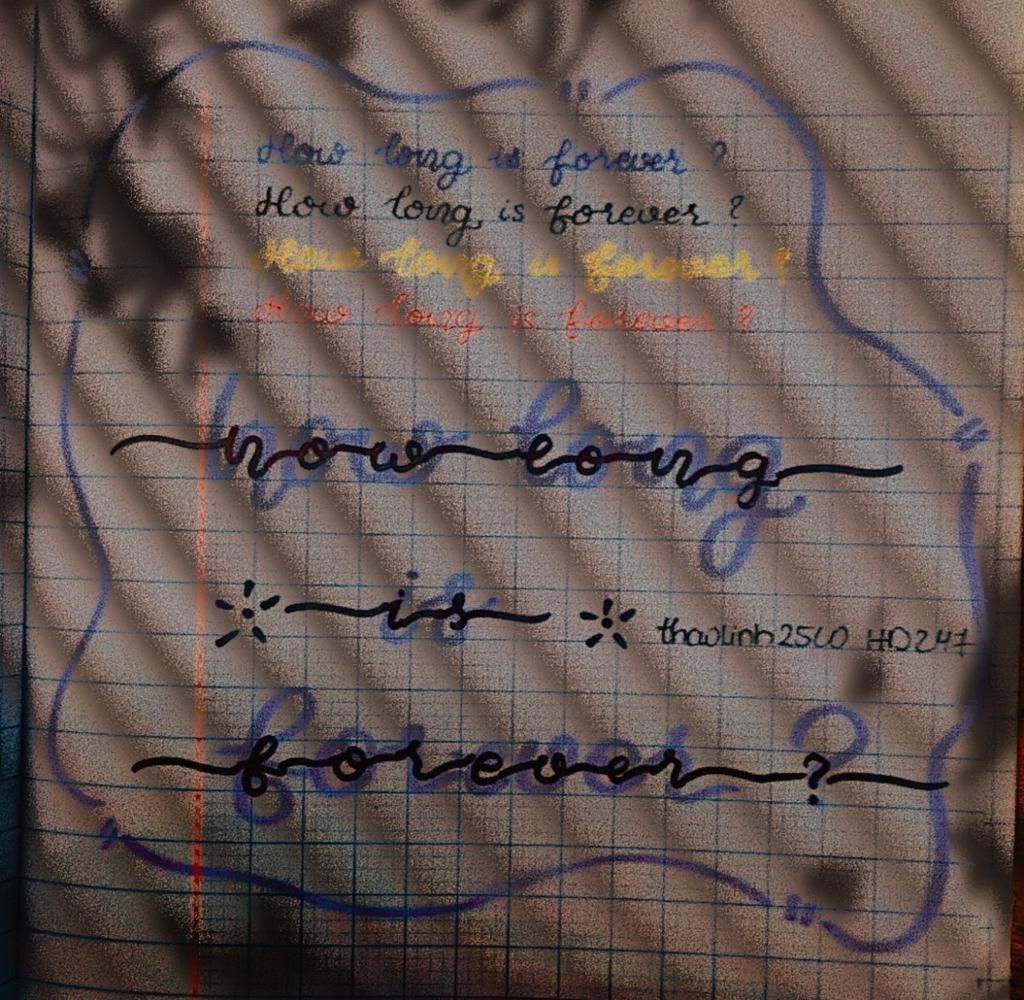 How long is forever ?
How long is forever ?
How long is forever ?
How long is forever ?
how long
is
thaolinh2560 HD247
forever ?